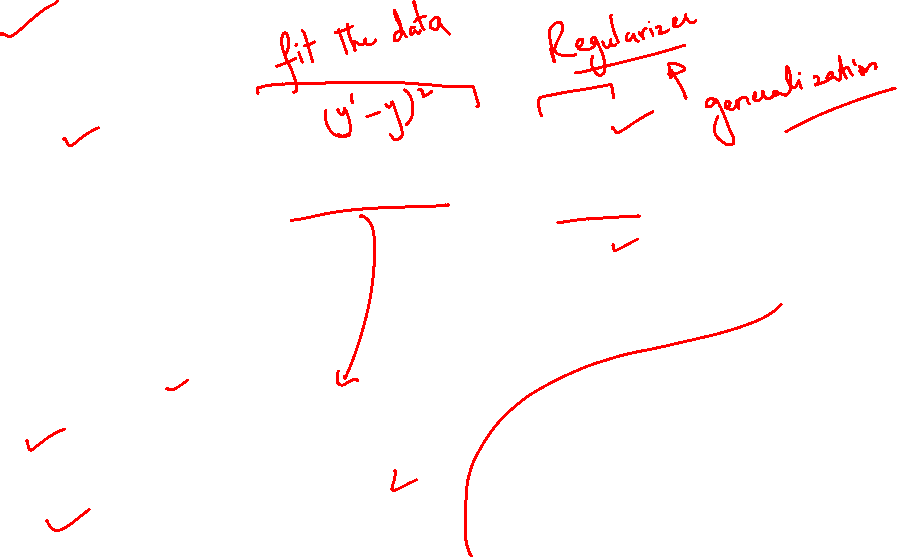 fit the data
Regularizer
generalization
(y' - y)²